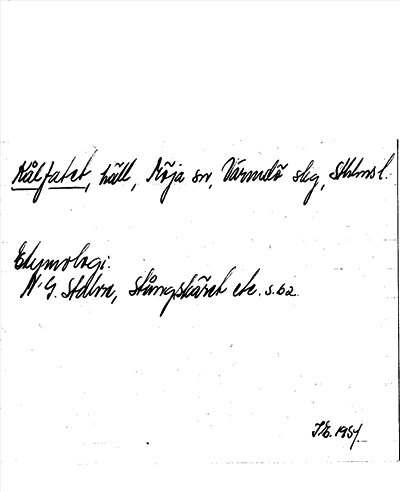 Kålfatet, häll, Möja sn, Värmdö skg, Sthlmsl.
Etymologi.
N. G. Stahre, Stångskäret etc. s. 62
J.E. 1957